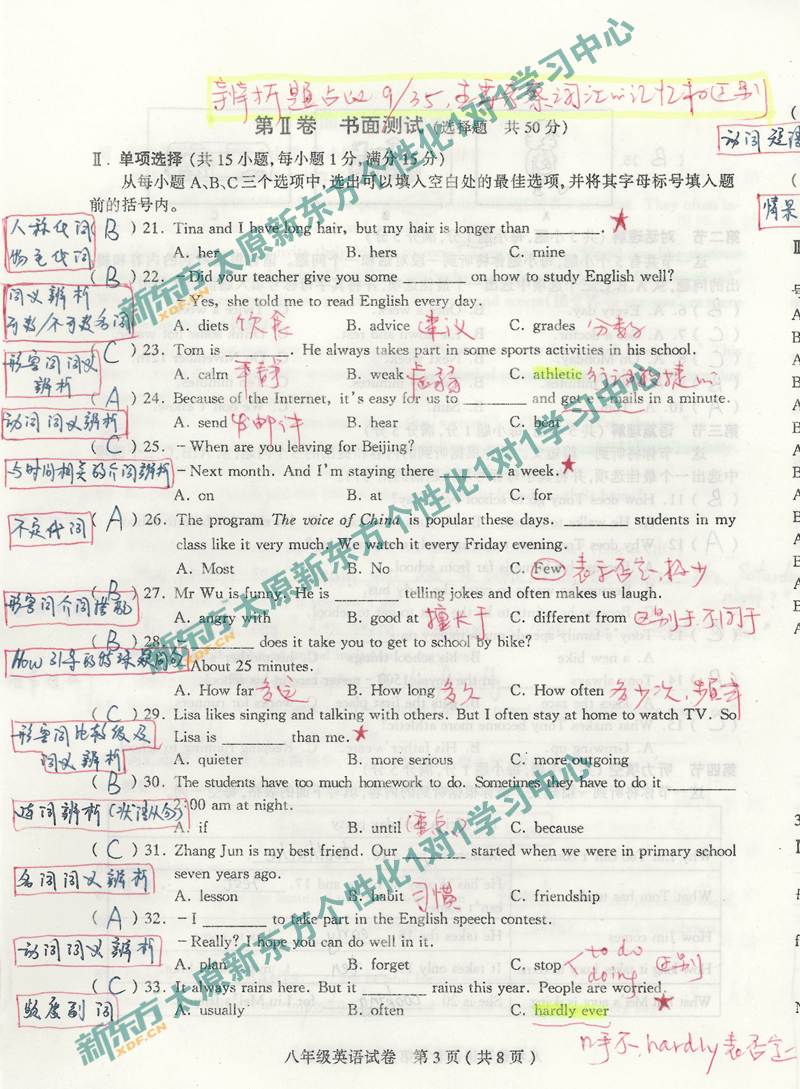 辨析题占比9/35,主要考察词汇的记忆和区别
第Ⅱ卷 书面测试(选择题 共50分)
动词短语
Ⅱ.单项选择(共15小题,每小题1分,满分15分)
从每小题A、B、C三个选项中,选出可以填入空白处的最佳选项,并将其字母标号填入题
前的括号内。
情景
人称代词
物主代词
( B ) 21. Tina and I have long hair, but my hair is longer than ________. ★
A. her B. hers C. mine
词义辨析
可数/不可数名词
( B ) 22. – Did your teacher give you some ________ on how to study English well?
– Yes, she told me to read English every day.
A. diets 饮食 B. advice 建议 C. grades 分数
形容词词义
辨析
( C ) 23. Tom is ________. He always takes part in some sports activities in his school.
A. calm 平静 B. weak 虚弱 C. athletic 行动敏捷的
动词词义辨析
( A ) 24. Because of the Internet, it's easy for us to ________ and get e-mails in a minute.
A. send 发邮件 B. hear C. beat
与时间相关的介词辨析
( C ) 25. – When are you leaving for Beijing?
– Next month. And I'm staying there ________ a week. ★
A. on B. at C. for
不定代词
( A ) 26. The program The voice of China is popular these days. ________ students in my
class like it very much. We watch it every Friday evening.
A. Most B. No C. Few 表示否定,极少
形容词介词搭配
( B ) 27. Mr Wu is funny. He is ________ telling jokes and often makes us laugh.
A. angry with B. good at 擅长于 C. different from 区别于,不同于
How引导的特殊疑问句
( B ) 28. ________ does it take you to get to school by bike?
About 25 minutes.
A. How far 多远 B. How long 多久 C. How often 多少次,频率
形容词比较级及
词义辨析
( C ) 29. Lisa likes singing and talking with others. But I often stay at home to watch TV. So
Lisa is ________ than me. ★
A. quieter B. more serious C. more outgoing
连词辨析(状语从句)
( B ) 30. The students have too much homework to do. Sometimes they have to do it ________
2:00 am at night.
A. if B. until 重点 C. because
名词词义辨析
( C ) 31. Zhang Jun is my best friend. Our ________ started when we were in primary school
seven years ago.
A. lesson B. habit 习惯 C. friendship
动词词义辨析
( A ) 32. – I ________ to take part in the English speech contest.
– Really? I hope you can do well in it.
A. plan B. forget C. stop < to do doing 区别
频度副词
( C ) 33. It always rains here. But it ________ rains this year. People are worried. ★
A. usually B. often C. hardly ever
几乎不,hardly表否定
八年级英语试卷 第3页(共8页)
新东方太原新东方个性化1对1学习中心
XDF.CN
新东方太原新东方个性化1对1学习中心
XDF.CN
新东方太原新东方个性化1对1学习中心
XDF.CN